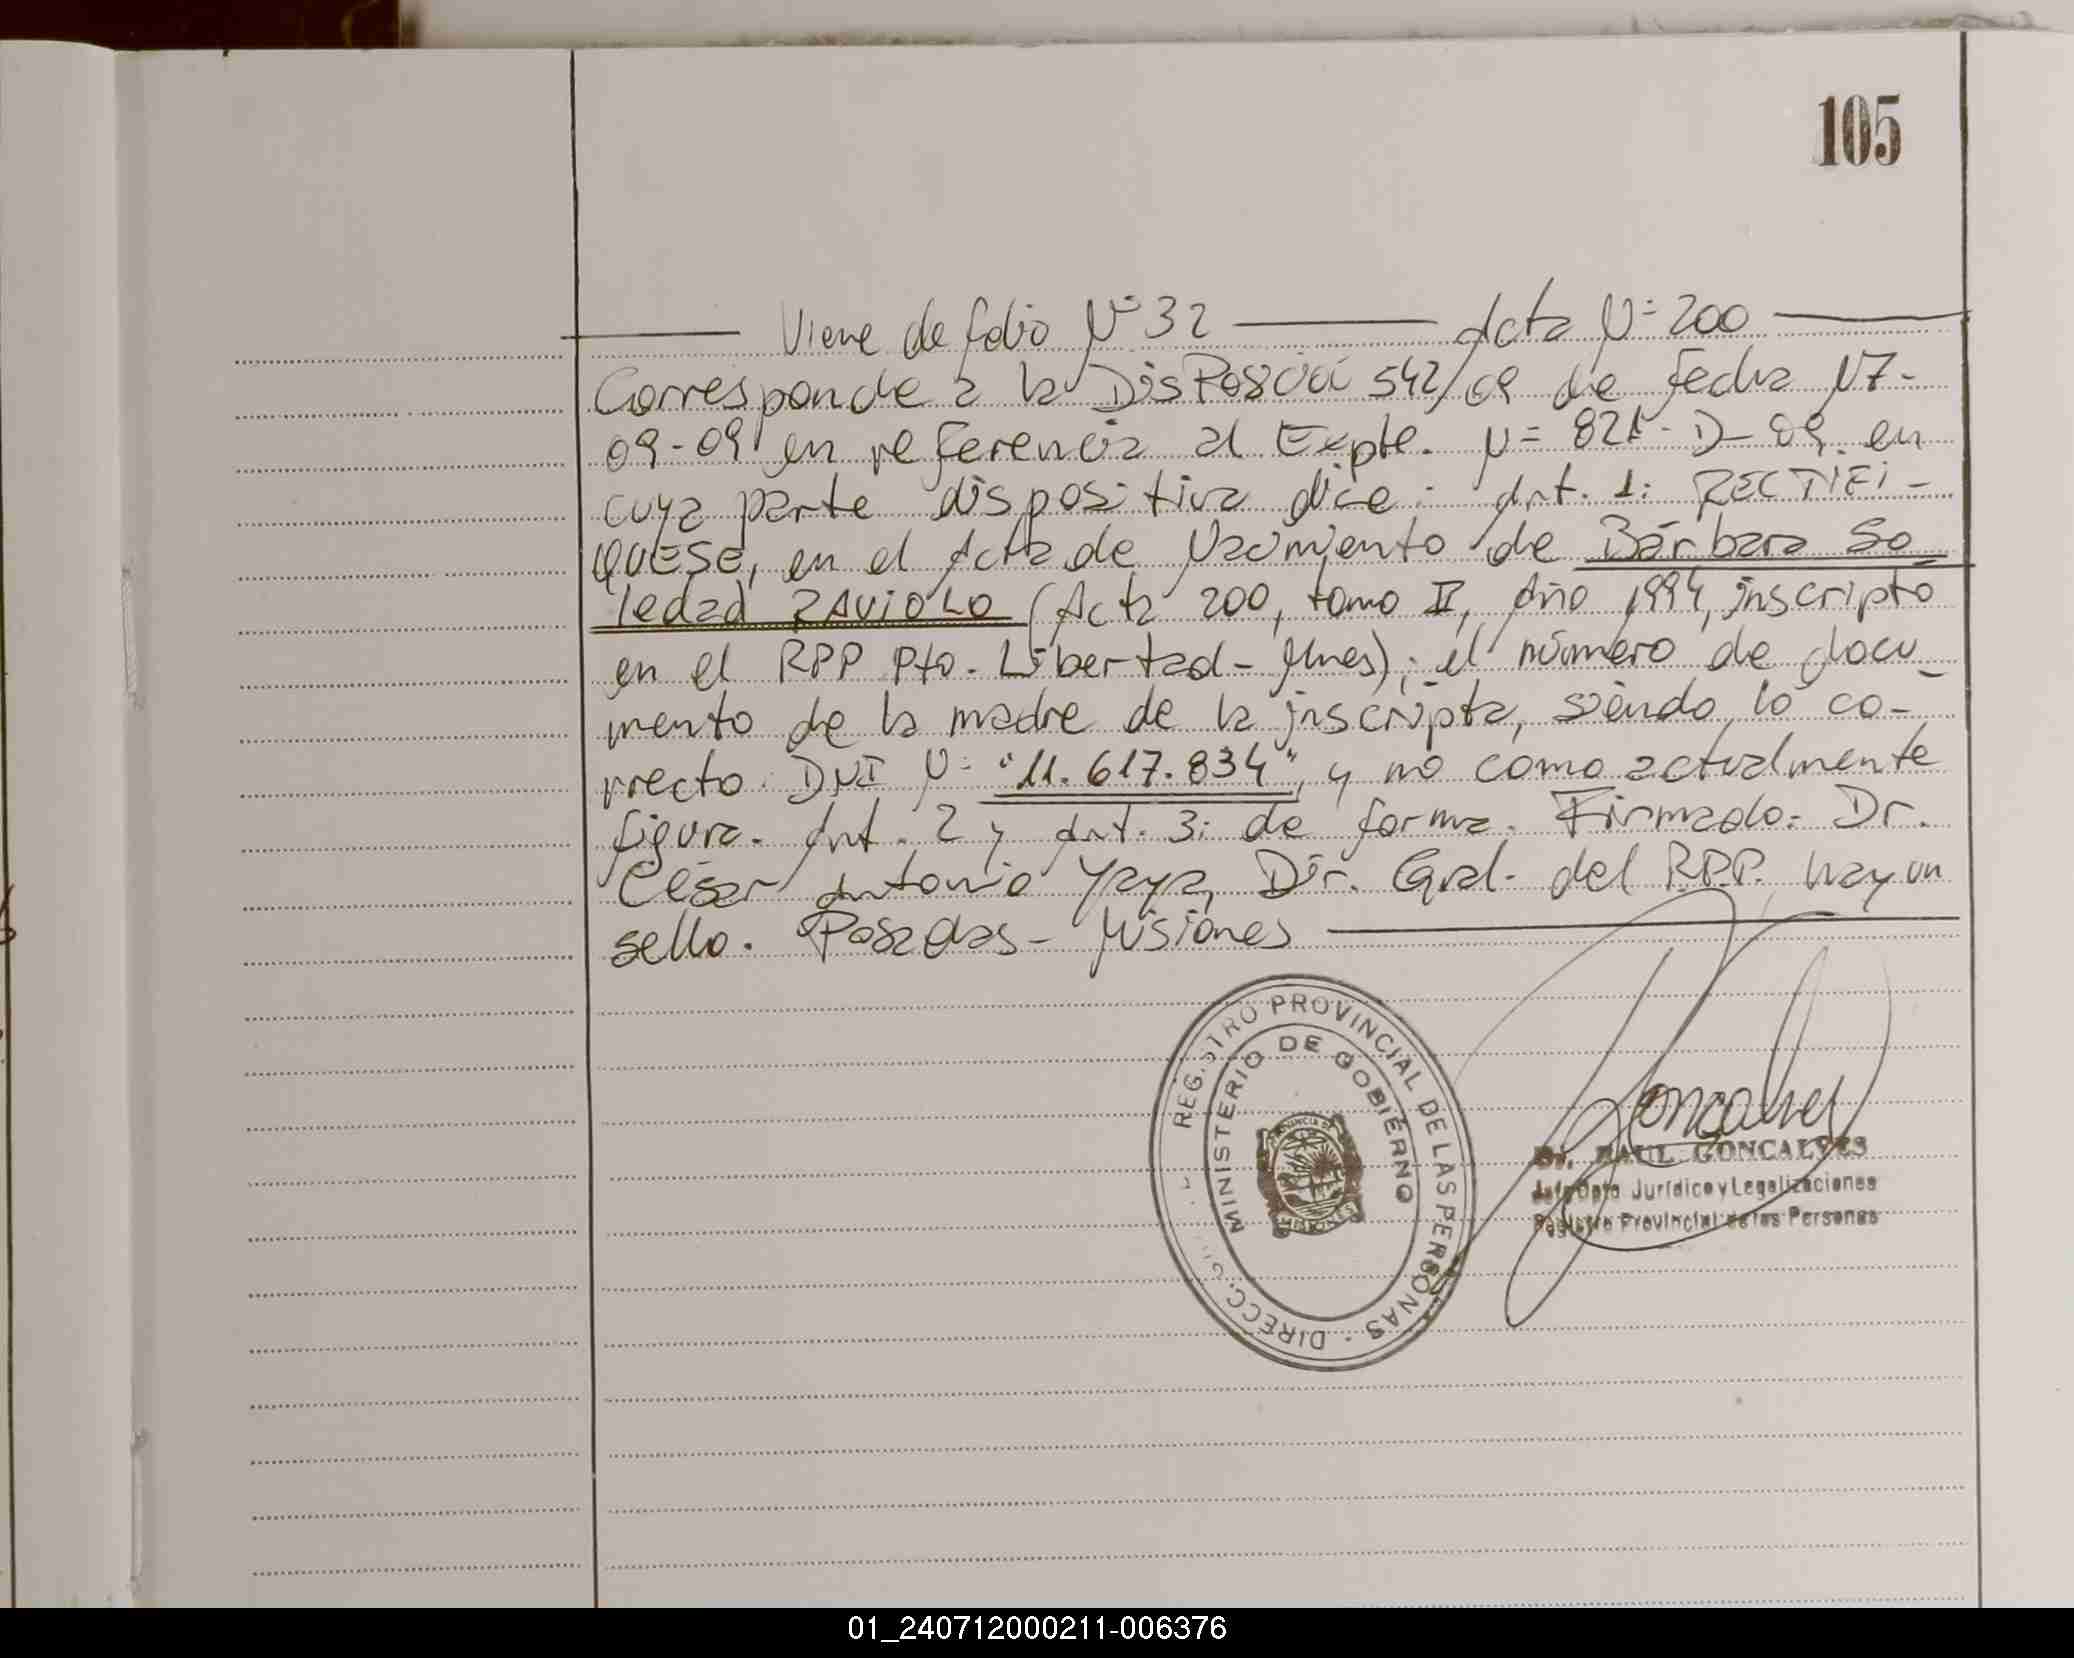 105
Viene de folio Nº 32 Acta Nº 200
Corresponde a la Disposición 542/09 de fecha 17-
09-09 en referencia al Expte. Nº 821-D-09 en
cuya parte dispositiva dice: Art. 1: RECTIFI-
QUESE, en el Acta de Nacimiento de Bárbara So
ledad RAVIOLO (Acta 200, tomo II, Año 1994, inscripto
en el RPP Pto. Libertad - Mnes); el número de docu-
mento de la madre de la inscripta, siendo lo co-
rrecto: DNI Nº "11.617.834", y no como actualmente
figura. Art. 2 y Art. 3: de forma. Firmado: Dr.
César Antonio Yaya, Dir. Gral. del R.P.P. hay un
sello. Posadas - Misiones
REGISTRO PROVINCIAL DE LAS PERSONAS · DIRECC.
MINISTERIO DE GOBIERNO
PROVINCIA DE
MISIONES
Goncalves
Dr. RAUL GONCALVES
Jefe Dpto Jurídico y Legalizaciones
Registro Provincial de las Personas
01_240712000211-006376